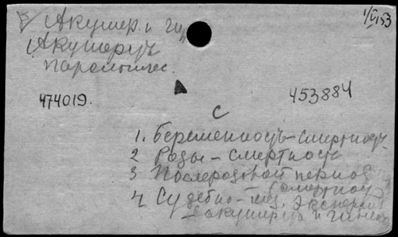 Акушер. и гин.
1/VI 53
Акушерск
паролитичес.
474019.
453884
С
1. Беременность-смертность
2 Роды - смертность
3 Послеродовой период
(смертность)
4 Судебно-мед. эксперт
в акушерстве и гинек